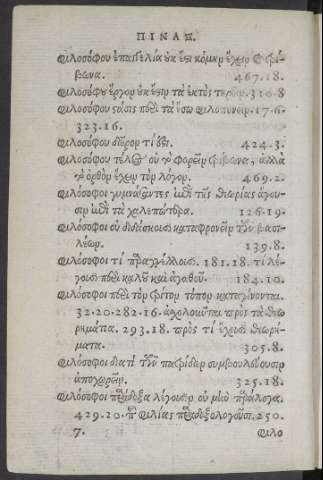 ΠΙΝΑΞ.
φιλοσόφου ἐπαγγελία οὐκ ἔστι κόμην ἔχειν ἢ τρί-
βωνα. 467.18.
φιλοσόφου ἔργον οὐκ ἔστιν τὰ ἐκτὸς τηρεῖν. 310.8
φιλοσόφου στάσις περὶ τὰ ἔσω φιλοπονεῖν. 17.6.
323.16.
φιλοσόφου δῶρον τί ἐστι. 424.3.
φιλοσόφου τέλος οὐ τὸ φορεῖν τρίβωνα, ἀλλὰ
τὸ ὀρθὸν ἔχειν τὸν λόγον. 469.2.
φιλόσοφοι γυμνάσαντες ἐπὶ τῆς θεωρίας ἄγου-
σιν ἐπὶ τὰ χαλεπώτερα. 126.19.
φιλόσοφοι οὐ διδάσκουσι καταφρονεῖν τῶν βασι-
λέων. 139.8.
φιλόσοφοι τί παραγγέλλουσι. 181.28. τί λέ-
γουσι περὶ καλοῦ καὶ ἀγαθοῦ. 184.10.
φιλόσοφοι περὶ τὸν τρίτον τόπον καταγίνονται.
32.20.282.16. ἀσχολοῦνται πρὸς τὰ θεω
ρήματα. 293.18. πρὸς τί ἔχουσι θεωρή-
ματα. 305.8.
φιλόσοφοι διατί τῶν πατρίδων συμβουλεύουσιν
ἀποχωρεῖν. 325.18.
φιλόσοφοι παράδοξα λέγουσιν οὐ μὴν παράλογα.
429.20. περὶ φιλίας παραδοξολογοῦσι. 250.
7. φιλο